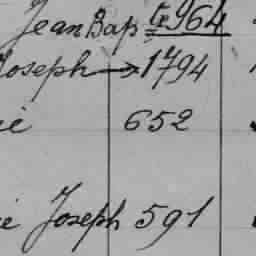 Jean Bap 6964
Joseph → 1794
ie 652
ie Joseph 591